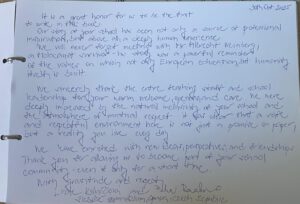 30th Oct 2025
It is a great honor for us to be the first
to write in this time.
Our visit at your school has been not only a source of professional
inspiration, but above all a deeply human experience.
We will never forget meeting with Mr Albrecht Weinberg,
a Holocaust survivor. He was a powerful reminder
of the values on which not only European education, but humanity
itself is built.
We sincerely thank the entire teaching staff and school
leadership for your warm welcome, openness and care. We were
deeply impressed by the natural of your school and
the atmosphere of mutual respect. It is clear that a safe
and respectful environment here is not just a promise on paper,
but a reality you live every day.
We leave enriched with new ideas, perspectives and friendships.
Thank you for allowing us to become part of your school
community - even if only for a short time.
With gratitude and respect,
and
from Czech